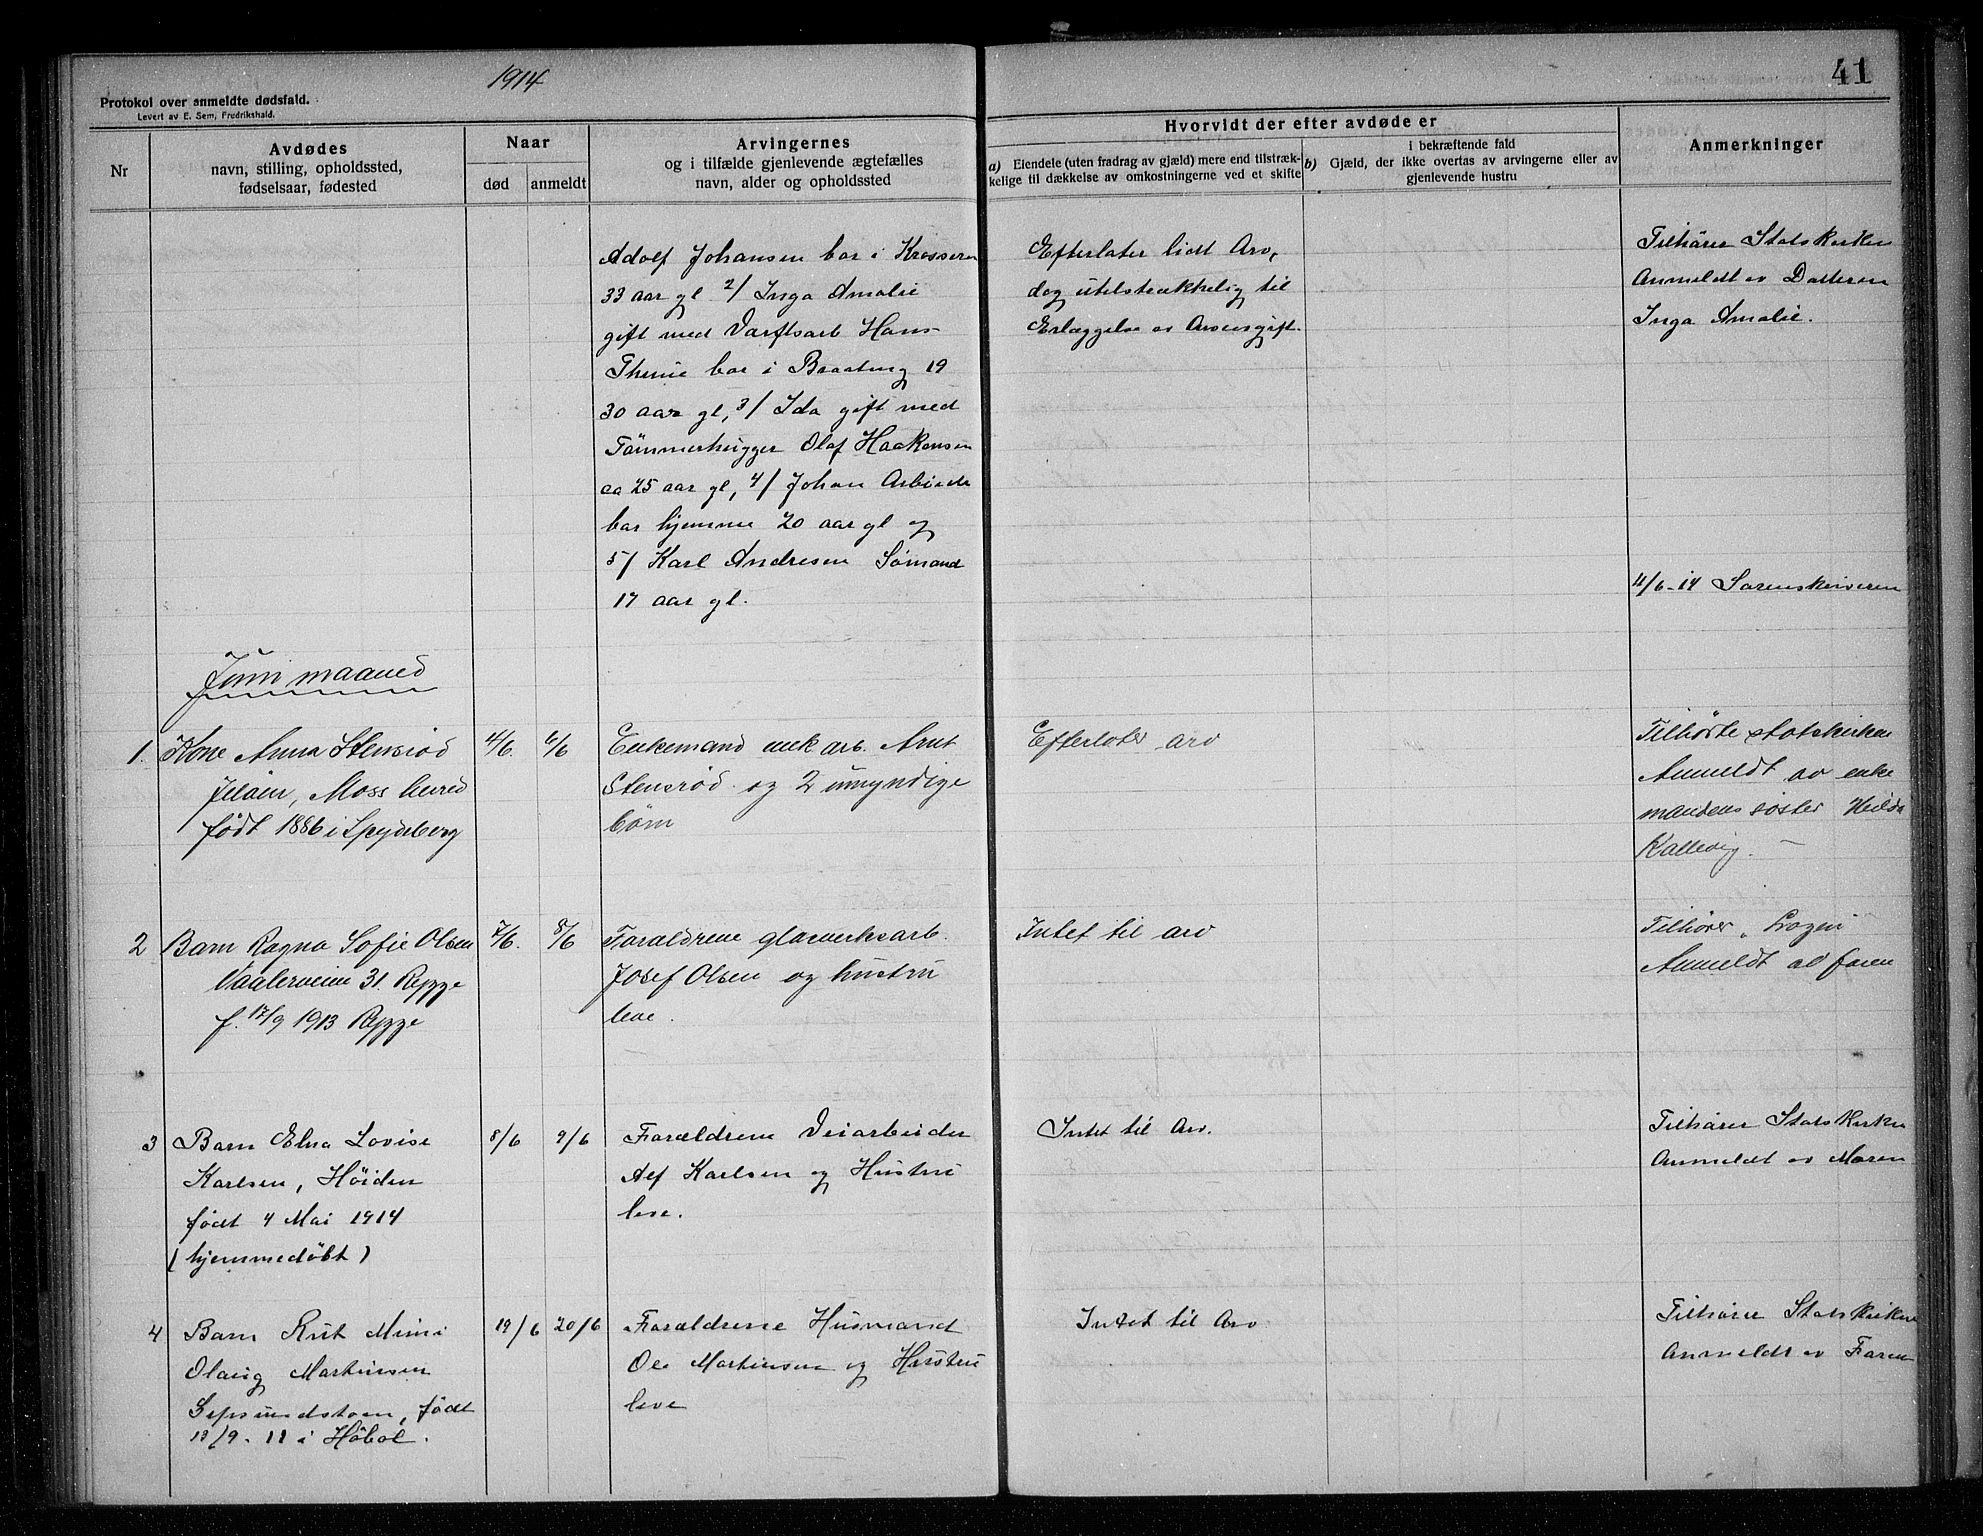 1914
41
Protokol over anmeldte dødsfald.
Levert av E. Sem, Fredrikshald.
Nr
Avdødes
navn, stilling, opholdssted,
fødselsaar, fødested
Naar
død
anmeldt
Arvingernes
og i tilfælde gjenlevende ægtefælles
navn, alder og opholdssted
Hvorvidt der efter avdøde er
a) Eiendele (uten fradrag av gjæld) mere end tilstræk-
kelige til dækkelse av omkostningerne ved et skifte
i bekræftende fald
b) Gjæld, der ikke overtas av arvingerne eller av
gjenlevende hustru
Anmerkninger
Adolf Johansen bor i Krosseren
33 aar gl 2/ Inga Amalie
gift med Varftsarb Hans
Thime bor i Braateng 19
30 aar gl, 3/ Ida gift med
Tømmerhugger Olaf Haakensen
ca 25 aar gl, 4/ Johan Arbeide
bor hjemme 20 aar gl og
5/ Karl Andresen Sømand
17 aar gl.
Efterlater lidt Arv,
dog utilstrækkelig til
Erlæggelse av Arveavgift.
Tilhører Statskirken
Anmeldt av Datteren
Inga Amalie.
4/6-14 Sorenskriveren
Juni maaned
1. Kone Anna Stensrød
Jeløen, Moss herred
født 1886 i Spydeberg
4/6.
6/6
Enkemand mek arb. Arnt
Stensrød og 2 umyndige
børn
Efterlater arv
Tilhørte statskirken
Anmeldt av enke
mandens søster Hilda
Kallevig. —
2 Barn Ragna Sofie Olsen
Vaalerveien 31. Rygge
f. 17/9 1913 Rygge
7/6.
8/6
Forældrene glasverksarb.
Josef Olsen og hustru
leve.
Intet til arv
Tilhører
Anmeldt av faren
3 Barn Elna Lovise
Karlsen, Høiden
født 4 Mai 1914
(hjemmedøbt)
8/6
9/6
Forældrene Veiarbeider
Alf Karlsen og Hustru
leve.
Intet til Arv.
Tilhører Statskirken
Anmeldt av Moren
4 Barn Rut Mimi
Olaug Martinsen
født
13/9. 11 i Høbøl.
19/6
20/6
Forældrene Husmand
Ole Martinsen og Hustru
leve
Intet til Arv
Tilhører Statskirken
Anmeldt av Faren